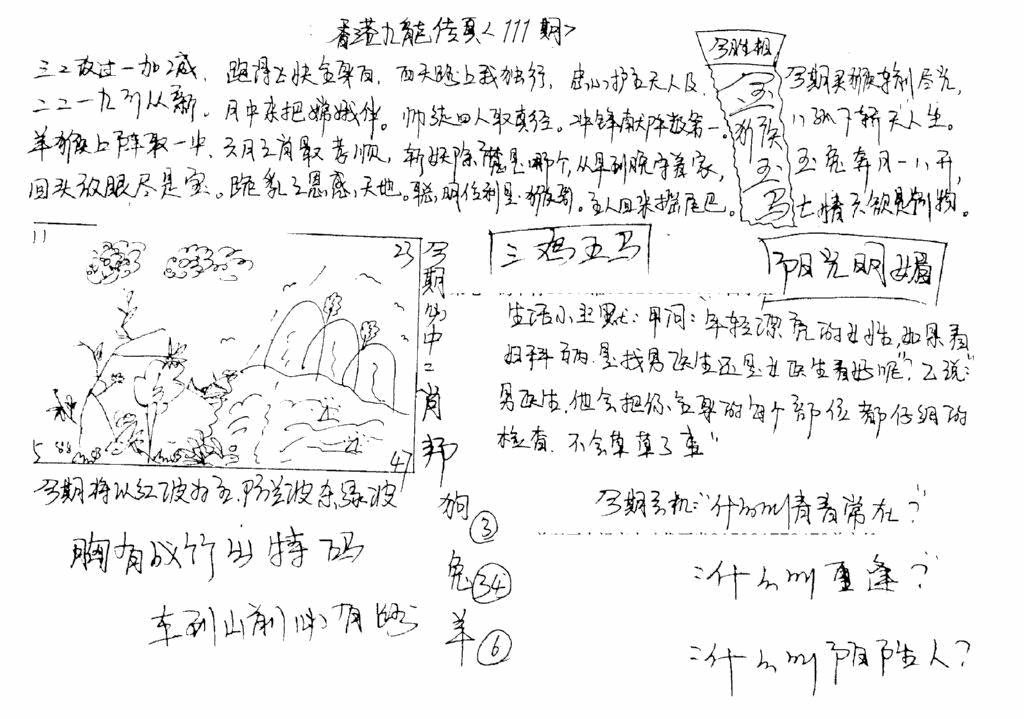 香港九龙传真<111期>
三二放过一加减，跑得太快全身白，西天路上我独行，忠心护主天人及，
二二一九引从新。月中亲把嫦娥伴。师徒四人取真经。冲锋献阵数第一。
羊猴上阵取一中，六月之肖最孝顺，斩妖除魔是哪个，从早到晚守着家，
回头放眼尽是宝。跪乳之恩感天地。聪明伶利是猴哥。主人回来摇尾巴。
今期买猴特别尽兴，
八纵下轿天人生。
玉兔奔月一八开，
七情六欲是动物。
今胜相
玉
猴
玉
马
11
23
5
47
今期必中一肖
狗③
兔㉞
羊⑥
三鸡五马
阳光明媚
生活小幽默：甲问：年轻漂亮的女性，如果看
妇科病，是找男医生还是女医生看好呢？"乙说：
男医生，他会把你全身的每个部位都仔细的
检查，不会草草了事"
今期将以红波为主，防兰波杀绿波
胸有成竹出特码
车到山前必有路
今期玄机："什么叫青春常在？"
：什么叫重逢？"
：什么叫阴阳人？